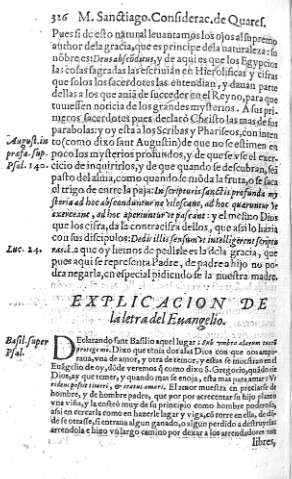 316 M. Sanctiago. Considerac. de Quares.
Pues si de esto natural leuantamos los ojos al supremo
author dela gracia, que es principe dela naturaleza: su
nõbre es: Deus absconditus, y de aqui es que los Egypcios
las cosas sagradas las escriuian en Hieroglificas y cifras
que solos los sacerdotes las entendian, y dauan parte
dellas a los que auia de suceder en el Reyno, para que
touiessen noticia de los grandes mysterios. A sus pri-
meros sacerdotes pues declaró Christo las mas de sus
parabolas: y oy esta a los Scribas y Phariseos, con inten
August. in
to (como dixo sant Augustin) de que no se estimen en
præfa. sup.
poco los mysterios profundos, y de que se vse el exer-
Psal. 140.
cicio de inquirirlos, y de que quando se descubran, sea
pasto del alma, como quando se mõda la fruta, o se saca
el trigo de entre la paja: In scripturis sanctis profunda my
steria ad hoc absconduntur ne vilescant, ad hoc quæruntur vt
exerceant, ad hoc aperiuntur vt pascant: y el mesmo Dios
que los cifra, da la contracifra dellos, que assi lo haria
Luc. 24.
con sus discipulos: Dedit illis sensum vt intelligerent scriptu
ras. Lo que oy hemos de pedirle es la dela gracia, que
pues aqui se representa Padre, de padre a hijo no po-
dra negarla, en especial pidiendo se la nuestra madre.
EXPLICACION DE
la letra del Euangelio.
Basil. super
Psal.
DEclarando sant Basilio aquel lugar: Sub vmbra alarum tuarũ
protege me. Dixo que tenia dos alas Dios con que nos ampa-
raua, vna de amor, y otra de temor, y estas se muestran en el
Euãgelio de oy, dõde veremos q̃ como dixo S. Gregorio, quãdo es
Dios, ay que temer, y quando mas se enoja, essa mas para amar: Vt
videam potest timeri, & tratus amari. El amor muestra en preciarse de
hombre, y de hombre padre, que por por acrecentar su hijo planto
vna viña, y la costeó muy de su principio como hombre poderoso,
assi en cercarla como en hazerle lagar y viga, cõ torre en ella, de dõ-
de se otrasse, si entraua algun ganado, o algun perdido a destruyrla:
arrendola e hizo vn largo camino por dexar a los arrendadores mas
libres,